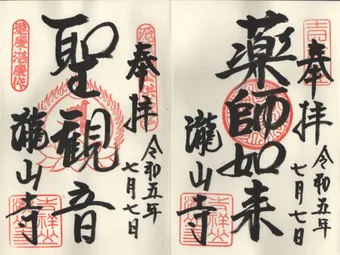 奉拝
薬師如来
瀧山寺
令和五年
七月七日
奉拝
聖観音
瀧山寺
令和五年
七月七日
運慶・湛慶作